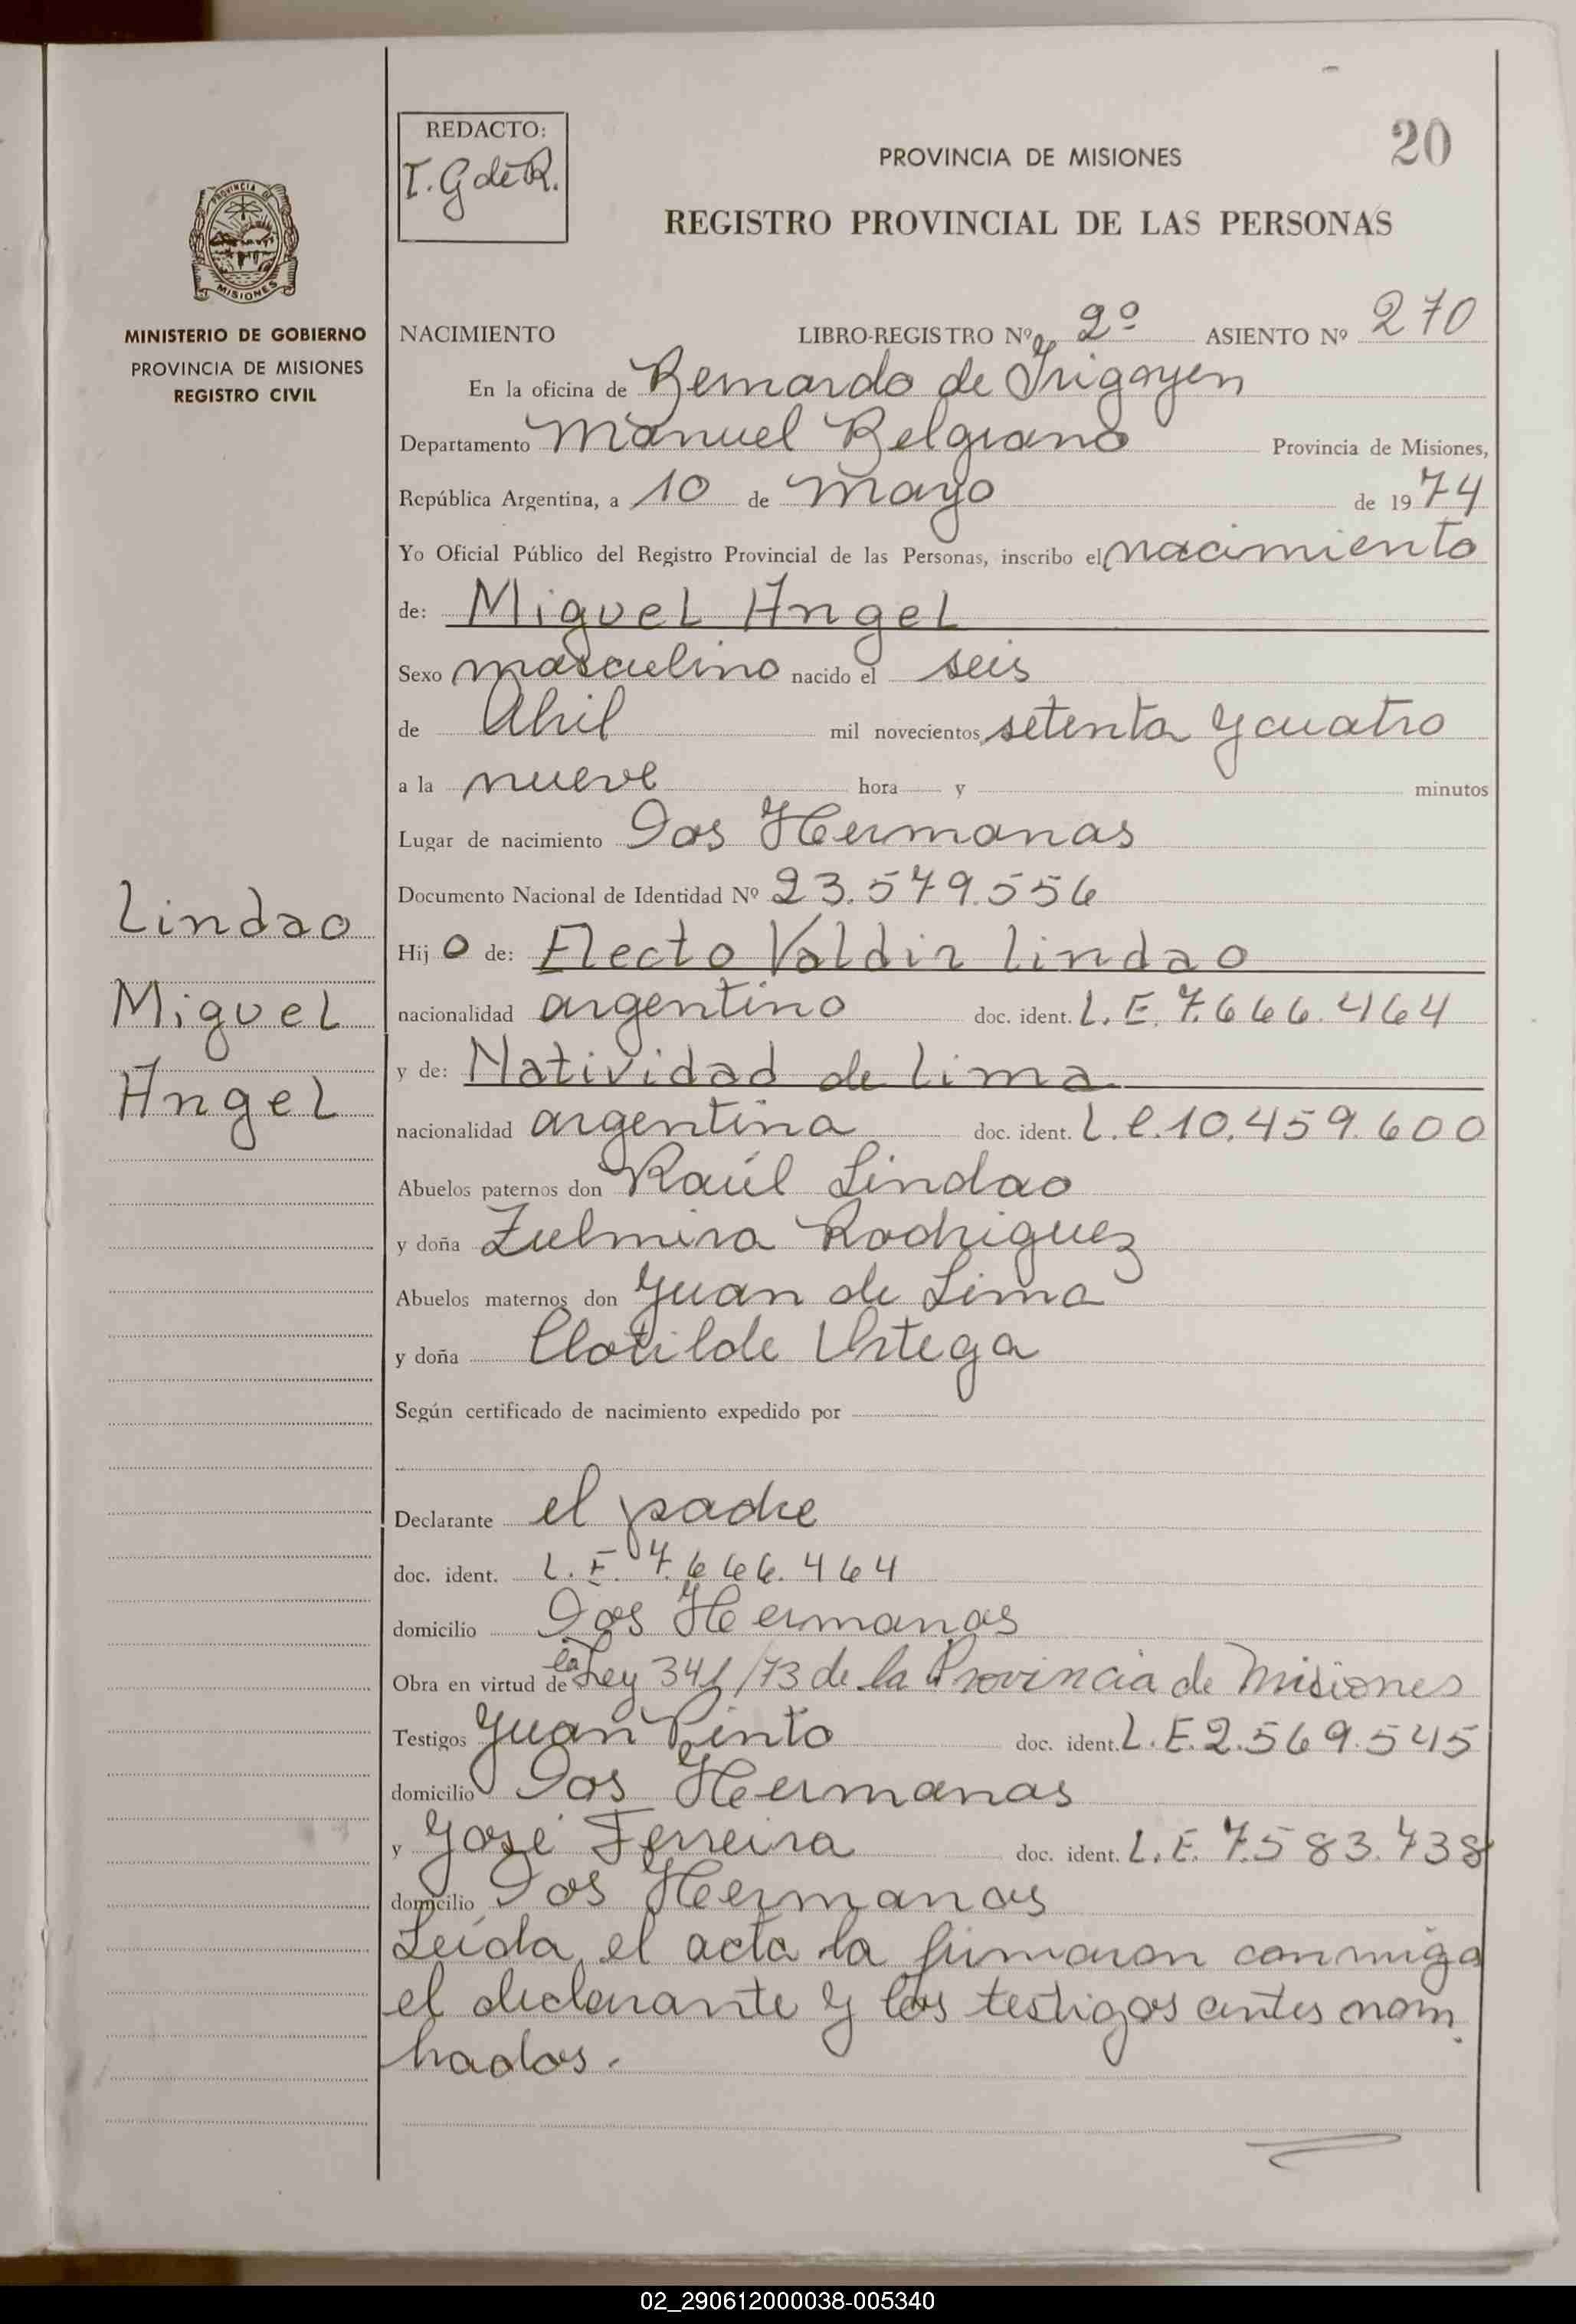 REDACTO:
T. G de R.
20
PROVINCIA DE MISIONES
REGISTRO PROVINCIAL DE LAS PERSONAS
PROVINCIA DE
MISIONES
MINISTERIO DE GOBIERNO
PROVINCIA DE MISIONES
REGISTRO CIVIL
NACIMIENTO LIBRO-REGISTRO Nº 2º ASIENTO Nº 270
En la oficina de Bernardo de Irigoyen
Departamento Manuel Belgrano Provincia de Misiones,
República Argentina, a 10 de mayo de 1974
Yo Oficial Público del Registro Provincial de las Personas, inscribo el nacimiento
de: Miguel Angel
Sexo masculino nacido el seis
de Abril mil novecientos setenta y cuatro
a la nueve hora y minutos
Lugar de nacimiento Dos Hermanas
Documento Nacional de Identidad Nº 23.579.556
Lindao
Miguel
Angel
Hijo de: Electo Valdir Lindao
nacionalidad argentino doc. ident. L.E. 7.666.464
y de: Natividad de Lima
nacionalidad argentina doc. ident. L.C. 10.459.600
Abuelos paternos don Raúl Lindao
y doña Zulmira Rodriguez
Abuelos maternos don Juan de Lima
y doña Clotilde Ortega
Según certificado de nacimiento expedido por
Declarante el padre
doc. ident. L.E. 7.666.464
domicilio Dos Hermanas
Obra en virtud de la Ley 341/73 de la Provincia de Misiones
Testigos Juan Pinto doc. ident. L.E. 2.569.545
domicilio Dos Hermanas
y José Ferreira doc. ident. L.E. 7.583.738
domicilio Dos Hermanas
Leída el acta la firmaron conmigo
el declarante y los testigos antes nom
brados.
02_290612000038-005340